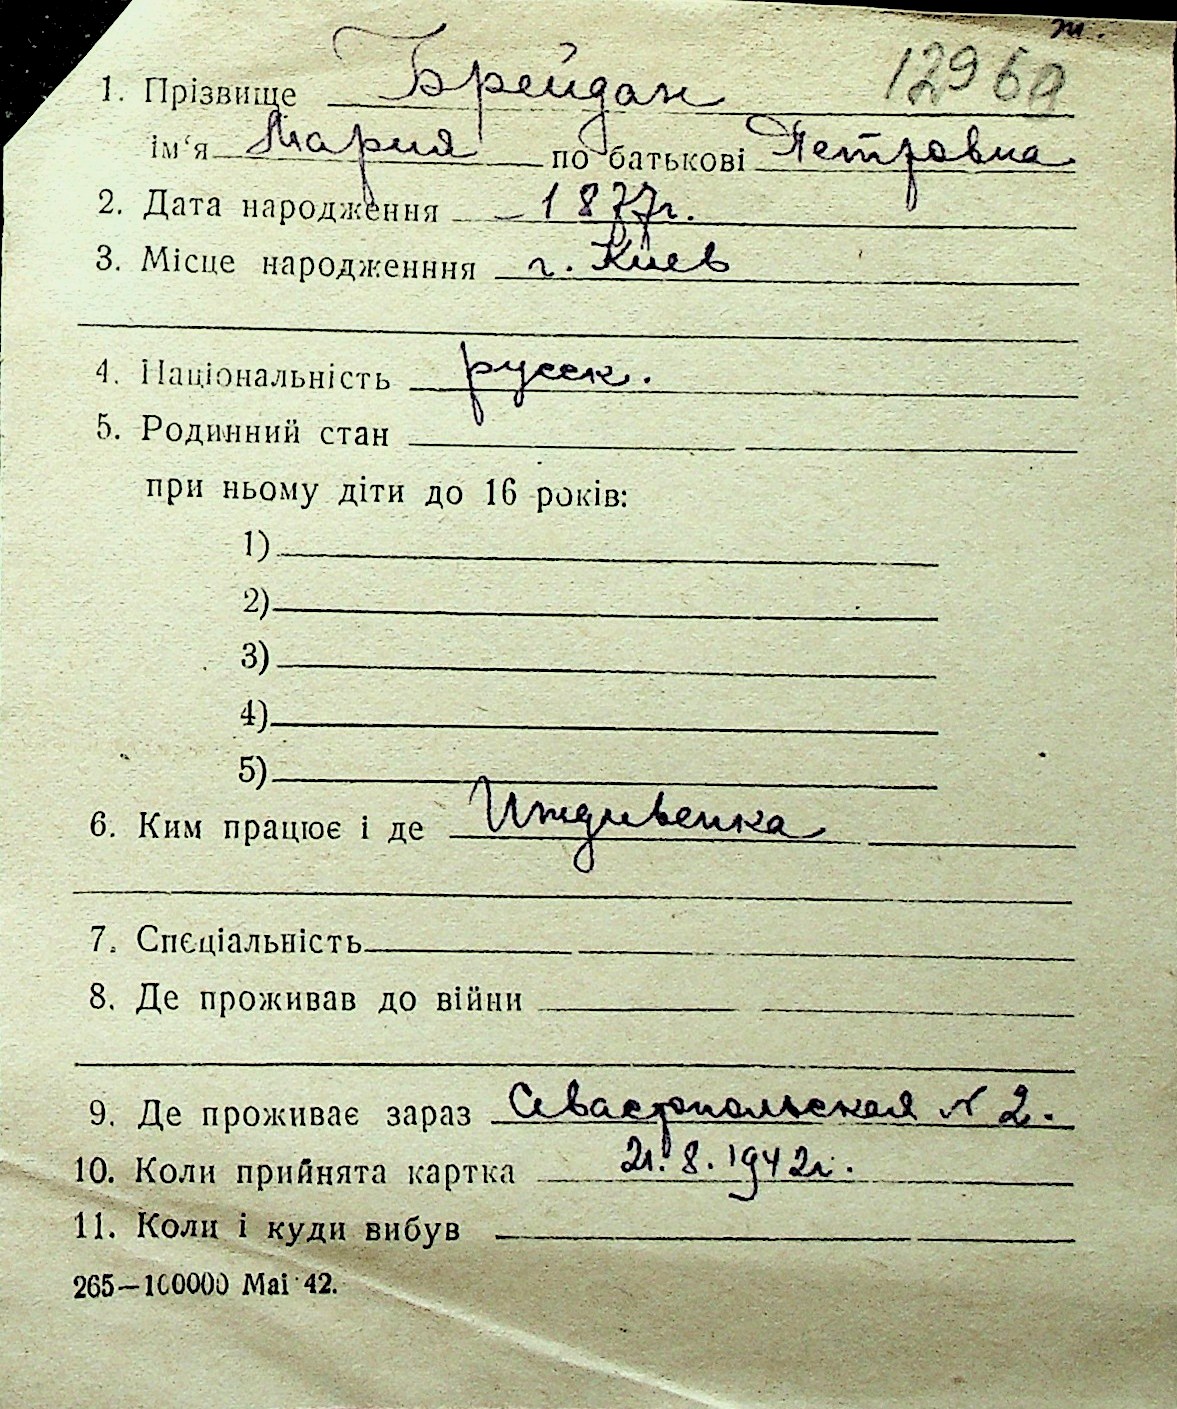 т.
1. Прізвище Брейдан 12960
ім‘я Мария по батькові Петровна
2. Дата народження 1877г.
3. Місце народженння г. Киев
4. Національність русск.
5. Родинний стан
при ньому діти до 16 років:
1)
2)
3)
4)
5)
6. Ким працює і де Иждивенка
7. Спєціальність
8. Де проживав до війни
9. Де проживає зараз Севастопольская № 2.
10. Коли прийнята картка 21.8.1942г.
11. Коли і куди вибув
265—100000 Mai 42.